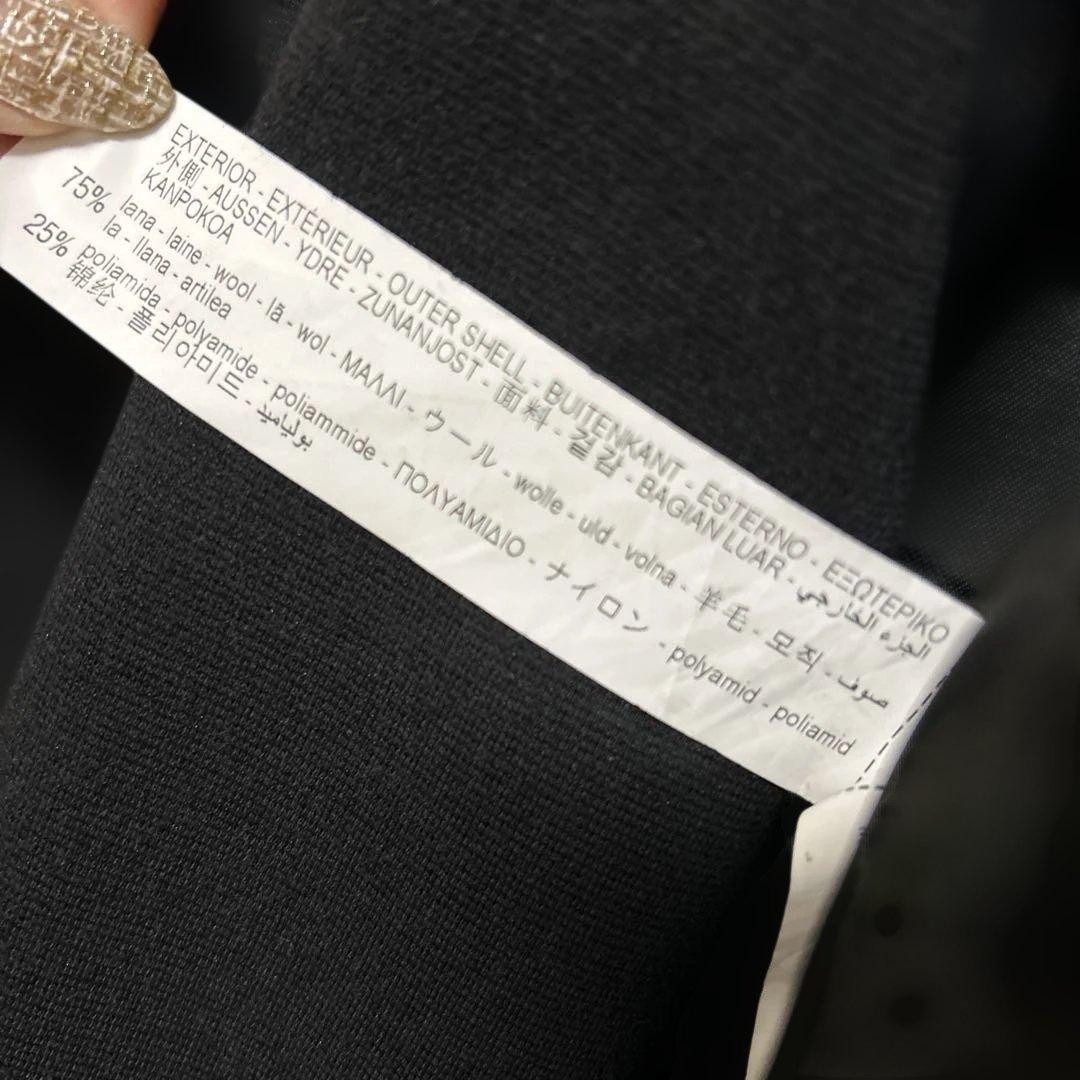 EXTERIOR - EXTÉRIEUR - OUTER SHELL - BUITENKANT - ESTERNO - ΕΞΩΤΕΡΙΚΟ
外側 - AUSSEN - YDRE - ZUNANJOST - 面料 - 겉감 - BAGIAN LUAR - الجزء الخارجي
KANPOKOA
75% lana - laine - wool - lã - wol - ΜΑΛΛΙ - ウール - wolle - uld - volna - 羊毛 - 모직 - صوف
la - llana - artilea
25% poliamida - polyamide - poliammide - ΠΟΛΥΑΜΙΔΙΟ - ナイロン - polyamid - poliamid
锦纶 - 폴리아미드 - بولياميد